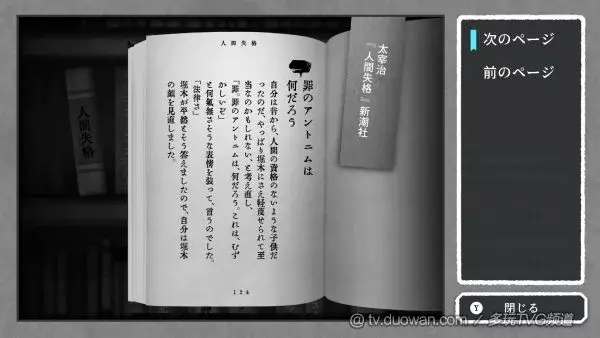 人間失格
人間失格
罪のアントニムは
何だろう
自分は昔から、人間の資格のないような子供だ
ったのだ、やっぱり堀木にさえ軽蔑せられて至
当なのかもしれない、と考え直し、
「罪。罪のアントニムは、何だろう。これは、むず
かしいぞ」
と何氣無さそうな表情を装って、言うのでした。
「法律さ」
堀木が平然とそう答えましたので、自分は堀木
の顔を見直しました。
124
太宰治
『人間失格』新潮社
次のページ
前のページ
Y 閉じる
@ tv.duowan.com / 多玩TVG频道